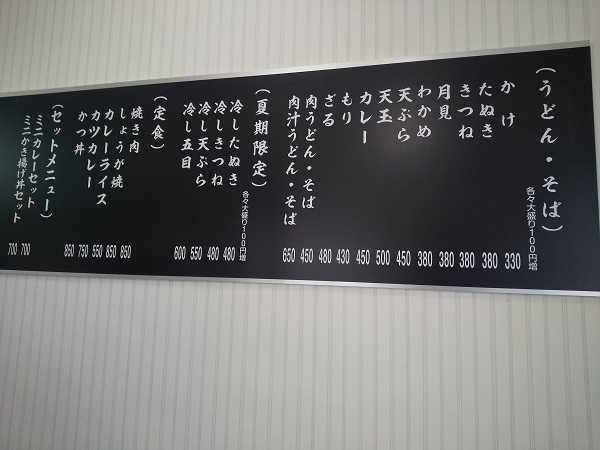 (うどん・そば)
各々大盛り100円増
かけ 330
たぬき 380
きつね 380
月見 380
わかめ 380
天ぷら 450
天玉 500
カレー 450
もり 430
ざる 480
肉うどん・そば 450
肉汁うどん・そば 650
(夏期限定)
各々大盛り100円増
冷したぬき 480
冷しきつね 480
冷し天ぷら 550
冷し五目 600
(定食)
焼き肉 850
しょうが焼 850
カレーライス 550
カツカレー 750
かつ丼 850
(セットメニュー)
ミニカレーセット 700
ミニかき揚げ丼セット 700